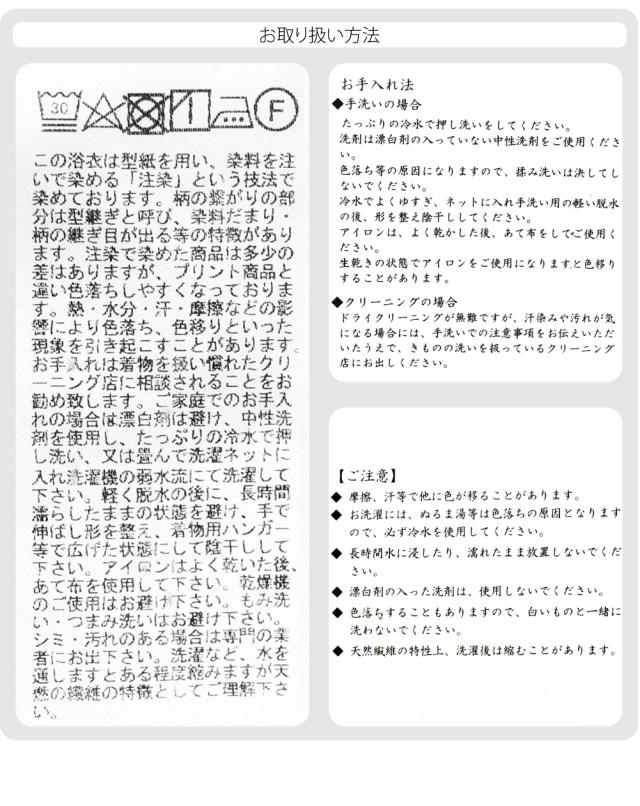 お取り扱い方法
30
F
この浴衣は型紙を用い、染料を注
いで染める「注染」という技法で
染めております。柄の繋がりの部
分は型継ぎと呼び、染料だまり・
柄の継ぎ目が出る等の特徴があり
ます。注染で染めた商品は多少の
差はありますが、プリント商品と
違い色落ちしやすくなっておりま
す。熱・水分・汗・摩擦などの影
響により色落ち、色移りといった
現象を引き起こすことがあります。
お手入れは着物を扱い慣れたクリ
ーニング店に相談されることをお
勧め致します。ご家庭でのお手入
れの場合は漂白剤は避け、中性洗
剤を使用し、たっぷりの冷水で押
し洗い、又は畳んで洗濯ネットに
入れ洗濯機の弱水流にて洗濯して
下さい。軽く脱水の後に、長時間
濡らしたままの状態を避け、手で
伸ばし形を整え、着物用ハンガー
等で広げた状態にして陰干しして
下さい。アイロンはよく乾いた後、
あて布を使用して下さい。乾燥機
のご使用はお避け下さい。もみ洗
い・つまみ洗いはお避け下さい。
シミ・汚れのある場合は専門の業
者にお出下さい。洗濯など、水を
通しますとある程度縮みますが天
然の繊維の特徴としてご理解下さ
い。
お手入れ法
◆手洗いの場合
たっぷりの冷水で押し洗いをしてください。
洗剤は漂白剤の入っていない中性洗剤をご使用くださ
い。
色落ち等の原因になりますので、揉み洗いは決してし
ないでください。
冷水でよくゆすぎ、ネットに入れ手洗い用の軽い脱水
の後、形を整え陰干ししてください。
アイロンは、よく乾かした後、あて布をしてご使用く
ださい。
生乾きの状態でアイロンをご使用になりますと色移り
することがあります。
◆クリーニングの場合
ドライクリーニングが無難ですが、汗染みや汚れが気
になる場合には、手洗いでの注意事項をお伝えいただ
いたうえで、きものの洗いを扱っているクリーニング
店にお出しください。
【ご注意】
◆ 摩擦、汗等で他に色が移ることがあります。
◆ お洗濯には、ぬるま湯等は色落ちの原因となります
ので、必ず冷水を使用してください。
◆ 長時間水に浸したり、濡れたまま放置しないでくだ
さい。
◆ 漂白剤の入った洗剤は、使用しないでください。
◆ 色落ちすることもありますので、白いものと一緒に
洗わないでください。
◆ 天然繊維の特性上、洗濯後は縮むことがあります。